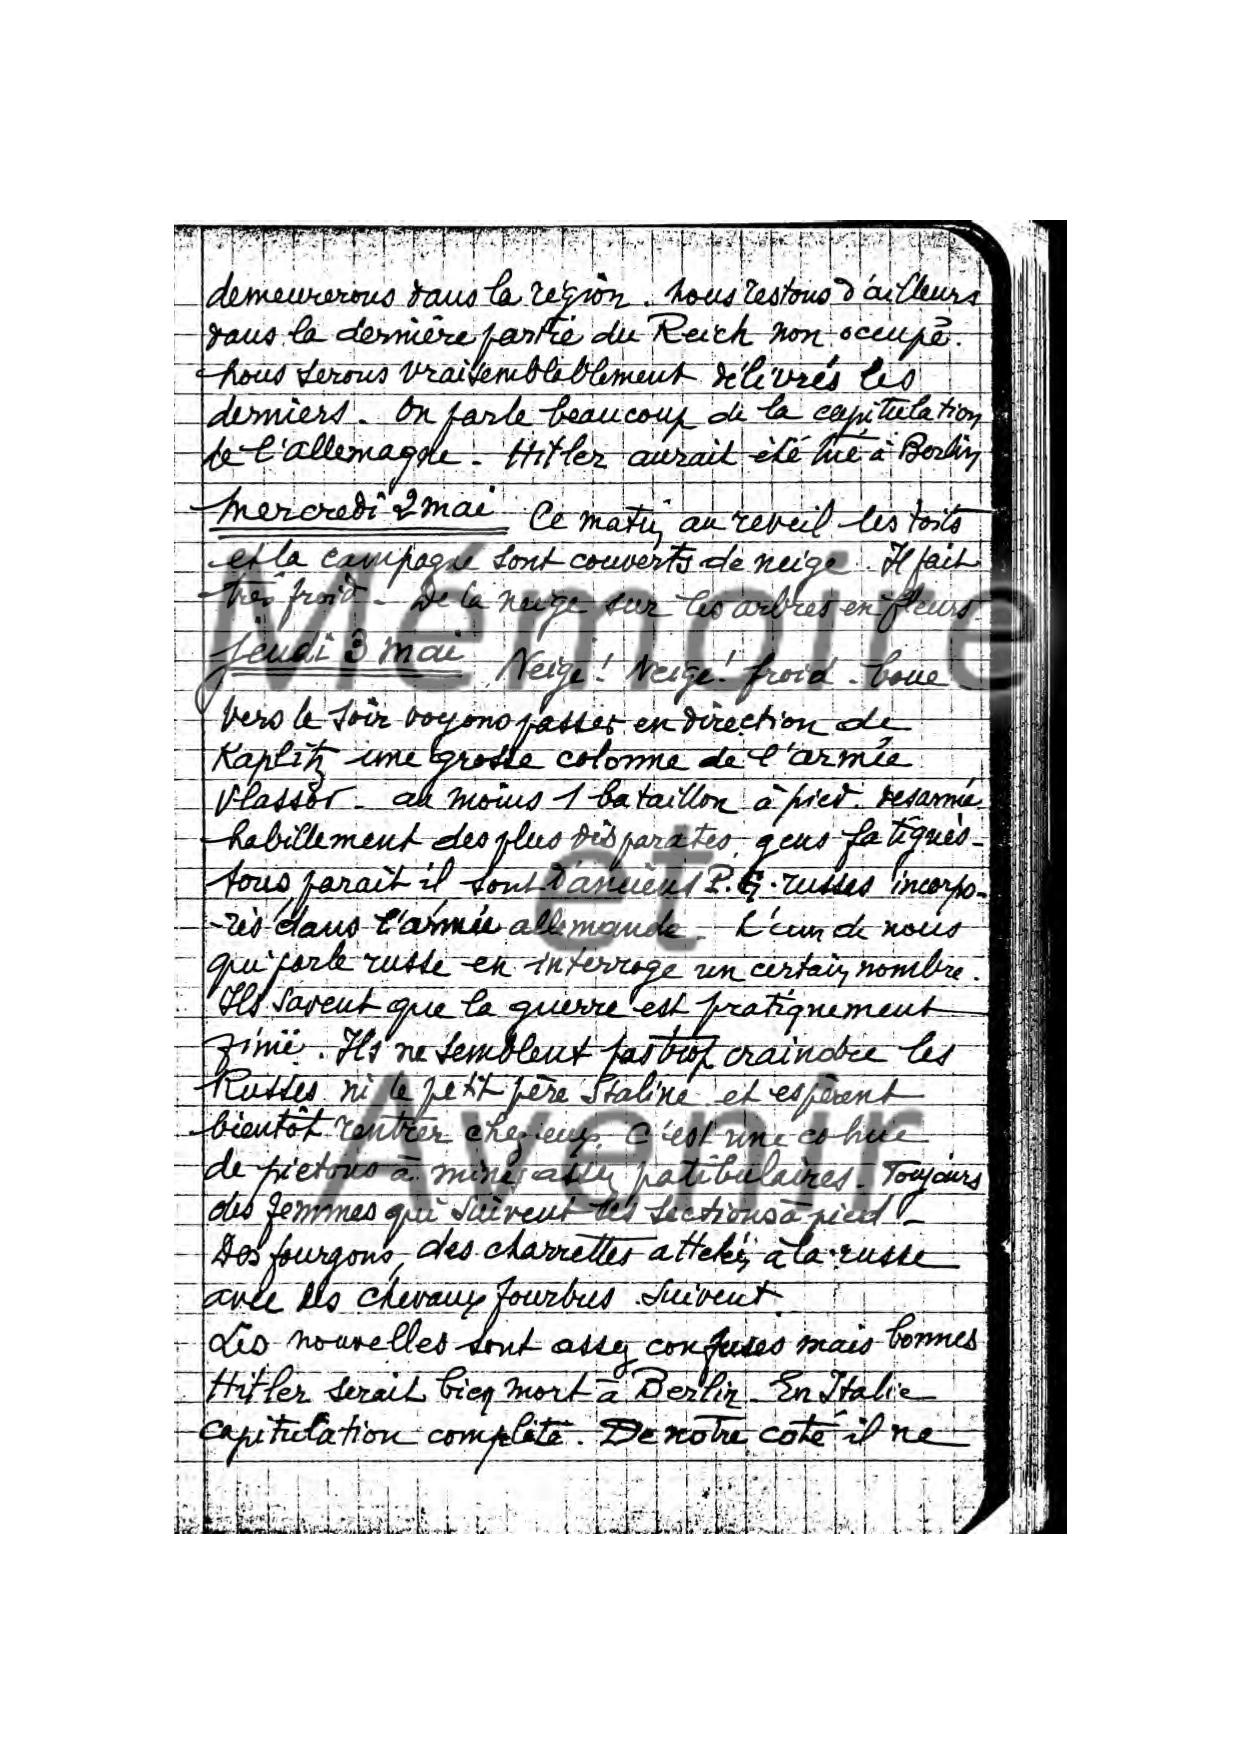 demeurerons dans la région. Nous restons d'ailleurs
dans la dernière partie du Reich non occupé.
Nous serons vraisemblablement délivrés les
derniers. On parle beaucoup de la capitulation
de l'allemagne. Hitler aurait été tué à Berlin
Mercredi 2 mai Ce matin au reveil les toits
et la campagne sont couverts de neige. Il fait
très froid. De la neige sur les arbres en fleurs.
Jeudi 3 mai Neige! Neige! froid. boue
Vers le soir voyons passer en direction de
Kaplitz une grosse colonne de l'armée
Vlassov. au moins 1 bataillon à pied. desarmé.
habillement des plus disparates, gens fatigués.
tous, parait il sont d'anciens P.G. russes incorpo-
-rés dans l'armée allemande. L'un de nous
qui parle russe en interroge un certain nombre.
Ils savent que la guerre est pratiquement
finie. Ils ne semblent pas trop craindre les
Russes ni le petit père Staline et espèrent
bientôt rentrer chez eux. C'est une cohue
de pietons à mines assez patibulaires. Toujours
des femmes qui suivent les sections à pied.
Des fourgons, des charrettes attelés à la russe
avec des chevaux fourbus suivent.
Les nouvelles sont assez confuses mais bonnes
Hitler serait bien mort à Berlin. En Italie
capitulation complète. De notre coté il ne
Mémoire
et
Avenir